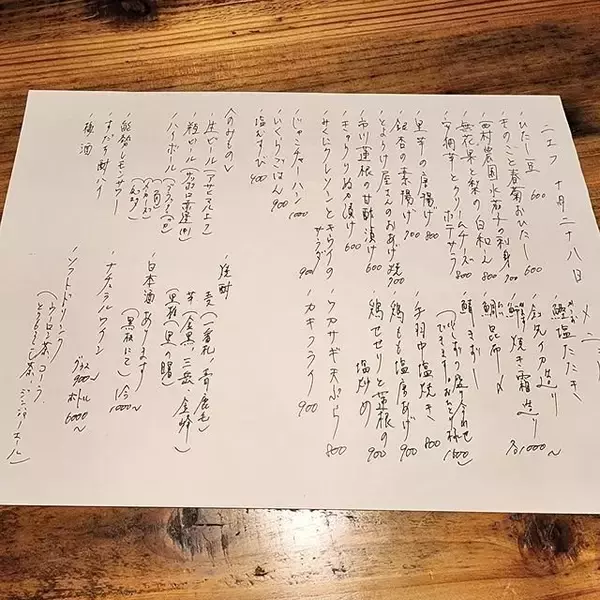 二エフ 十月二十八日 メニュー
・ひたし豆 600
・きのこと春菊おひたし 600
・西村農園水茄子の刺身 700
・無花果と梨の白和え 800
・安納芋とクリームチーズポテサラ 800
・里芋の唐揚げ 800
・銀杏の素揚げ 700
・とよけ屋さんのおあげ焼 700
・市川蓮根の甘酢漬け 600
・きゅうりぬか漬け 600
サラダ 900
・じゃこチャーハン 1000
・いくらごはん 900
・塩むすび 400
〈のみもの〉
・生ビール(アサヒマルエフ)
・瓶ビール(サッポロ赤星 中)
・ハイボール
・レモンサワー
・すだち酎ハイ
・梅酒
・鰹塩たたき
・金先イカ造り
・焼き霜造り
各1000〜
・鯛昆布〆
・鯖きずし
(つくおり盛り合わせできます!おひとり様1500)
・手羽中塩焼き 800
・鶏もも塩唐あげ 900
・鶏せせりと蓮根の塩炒め 900
・ワカサギ天ぷら 800
・カキフライ 900
・焼酎
麦(一番札、青鹿毛)
芋(金黒、三岳、金峰)
黒糖(里の曙)
・日本酒あります
(黒板にて) 1合 1000〜
・ナチュラルワイン
グラス 900〜 ボトル 6000〜
・ソフトドリンク
(ウーロン茶、コーラ、
とうもろこし茶、ジンジャーエール)